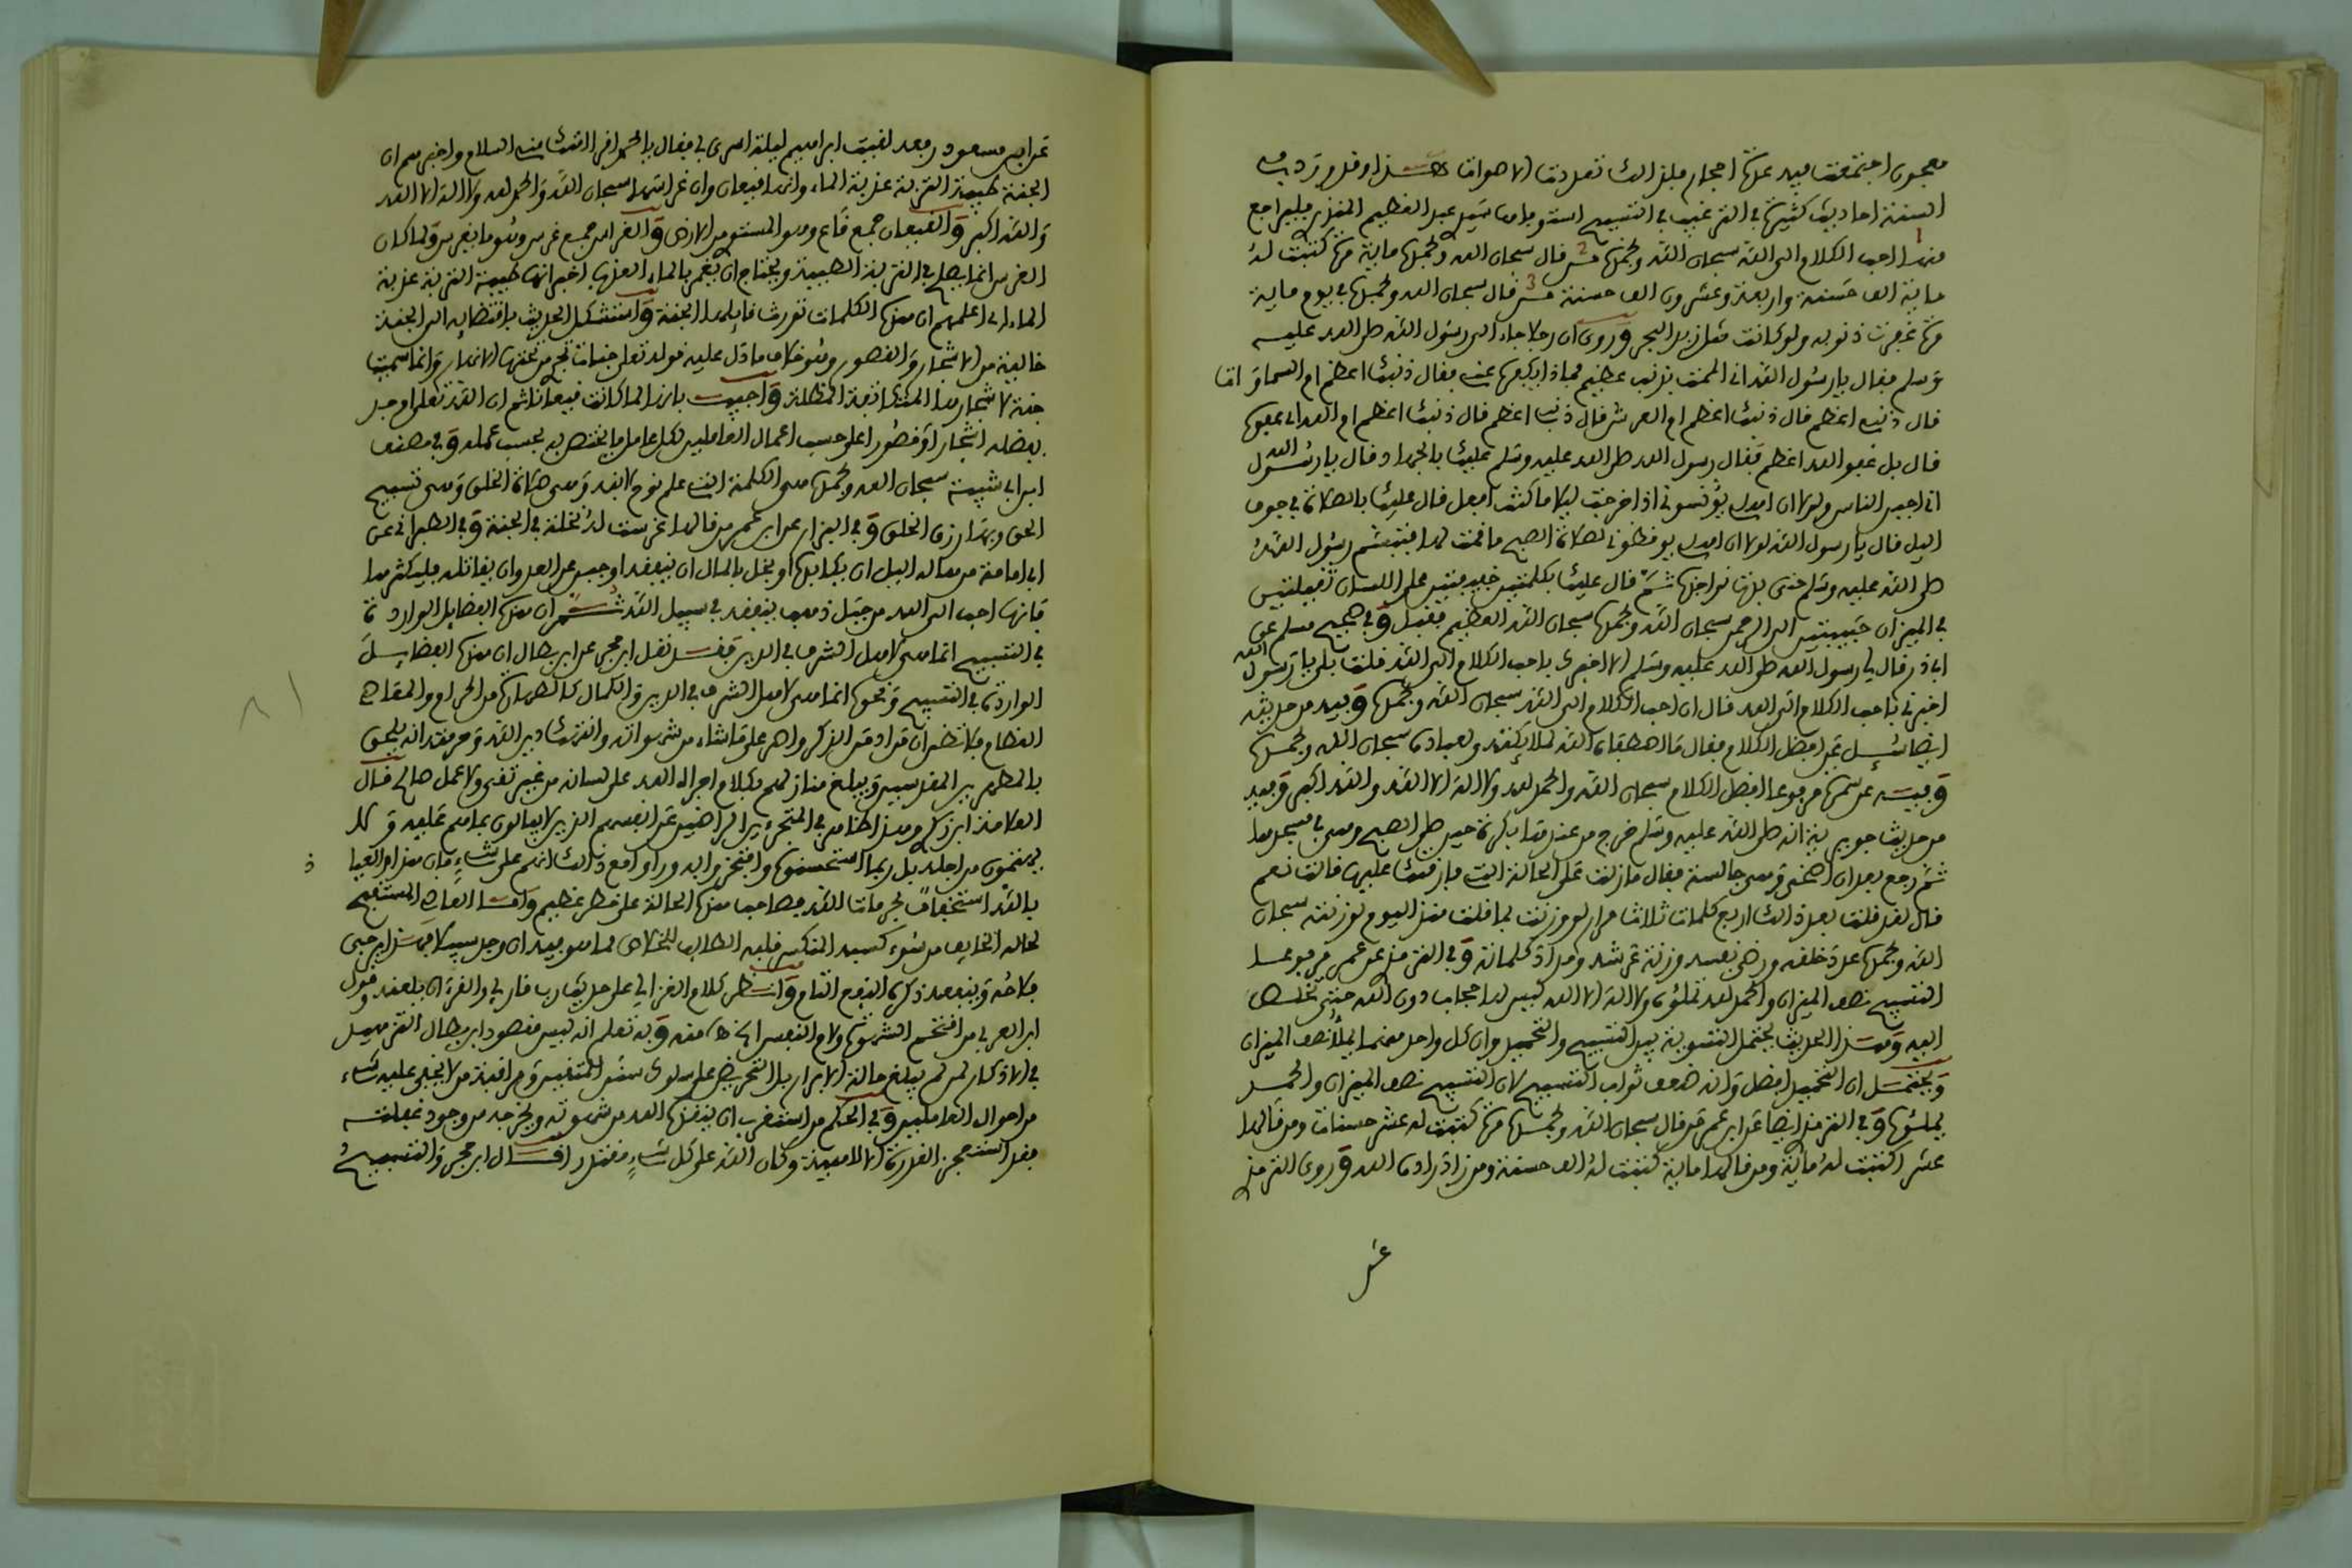 معجون اجتمعت فيه علة احجار فلذلك تعددت الاصوات هذا وقد ورد في
السنة احاديث كثيرة في الترغيب في التسبيح استوفاها سيدي عبد العظيم المنذري فليراجع
منها احب الكلام الى الله سبحان الله وبحمده من قال سبحان الله وبحمده ماية مرة كتبت له
ماية الف حسنة واربعة وعشرون الف حسنة من قال سبحان الله وبحمده في يوم ماية
مرة غفرت ذنوبه ولو كانت مثل زبد البحر وروي ان رجلا جاء الى رسول الله صلى الله عليه
وسلم فقال يا رسول الله اني الممت بذنب عظيم فماذا يكفره عني فقال ذنبك اعظم ام السماوات
قال ذنبي اعظم قال ذنبك اعظم ام العرش قال ذنبي اعظم قال ذنبك اعظم ام الله اي عفوه
قال بل عفو الله اعظم فقال رسول الله صلى الله عليه وسلم عليك بالجهاد فقال يا رسول الله
اني اجبن الناس ولولا ان اهلي يؤنسوني اذا خرجت ليلا ما كنت افعل قال عليك بالصلاة في جوف
اليل قال يا رسول الله لولا ان اهلي يوقظوني لصلاة الصبح ما قمت لها فتبسم رسول الله
صلى الله عليه وسلم حتى بدت نواجذه ثم قال عليك بكلمتين خفيفتين على اللسان ثقيلتين
في الميزان حبيبتين الى الرحمن سبحان الله وبحمده سبحان الله العظيم فقبل وفي صحيح مسلم عن
ابي ذر قال لي رسول الله صلى الله عليه وسلم الا اخبرك باحب الكلام الى الله قلت بلى يا رسول الله
اخبرني باحب الكلام الى الله فقال ان احب الكلام الى الله سبحان الله وبحمده وفيه من حديثه
ايضا سئل عن افضل الكلام فقال ما اصطفاه الله لملائكته ولعباده سبحان الله وبحمده
وفيه عن سمرة مرفوعا افضل الكلام سبحان الله والحمد لله ولا اله الا الله والله اكبر وفيه
من حديث جويرية انه صلى الله عليه وسلم خرج من عندها بكرة حين صلى الصبح وهي في مسجدها
ثم رجع بعد ان اضحى وهي جالسة فقال ما زلت على الحالة التي فارقتك عليها قالت نعم
قال لقد قلت بعدك اربع كلمات ثلاث مرار لو وزنت بما قلت منذ اليوم لوزنته سبحان
الله وبحمده عدد خلقه ورضى نفسه وزنة عرشه ومداد كلماته وفي الترمذي عن عمر مرفوعا
التسبيح نصف الميزان والحمد لله تملؤه ولا اله الا الله ليس لها حجاب دون الله حتى تخلص
اليه وهذا الحديث يحتمل التسوية بين التسبيح والتحميد وان كل واحد منهما يملأ نصف الميزان
ويحتمل ان التحميد افضل وان ضعف ثواب التسبيح لان التسبيح نصف الميزان والحمد
يملؤه وفي الترمذي ايضا عن ابن عمر من قال سبحان الله وبحمده مرة كتبت له عشر حسنات ومن قالها
عشرا كتبت له مائة ومن قالها ماية كتبت له الف حسنة ومن زاد زاده الله وروى الترمذي
عن
عن ابن مسعود رفعه لقيت ابراهيم ليلة اسري بي فقال يا محمد اقرا امتك مني السلام واخبرهم ان
الجنة طيبة التربة عذبة الماء وانها قيعان وان غراسها سبحان الله والحمد لله ولا اله الا الله
والله اكبر والقيعان جمع قاع وهو المستوي من الارض والغراس جمع غرس وهو ما يغرس ولما كان
الغرس انما يصلح في التربة الطيبة ويحتاج ان يغمر بالماء العذب اخبر انها طيبة التربة عذبة
الماء اي اعلمهم ان هذه الكلمات تورث قايلها الجنة واستشكل الحديث باقتضايه ان الجنة
خالية من الاشجار والقصور وهو خلاف ما دل عليه قوله تعلى جنات تجري من تحتها الانهار وانما سميت
جنة لاشجارها المتكاثفة المظللة واجيب بانها لما كانت قيعانا ثم ان الله تعلى اوجد
بفضله اشجارا وقصورا على حسب اعمال العاملين لكل عامل ما يختص به بحسب عمله وفي مصنف
ابن ابي شيبة سبحان الله وبحمده هي الكلمة التي علم نوح لابنه وهي صلاة الخلق وهي تسبيح
الحق وبها رزق الخلق وفي البزار عن ابن عمر من قالها غرست له نخلة في الجنة وفي الطبراني عن
ابي امامة من هاله اليل ان يكابده او بخل بالمال ان ينفقه او جبن عن العدو ان يقاتله فليكثر منها
فانها احب الى الله من جبل ذهب ينفقه في سبيل الله ثم ان هذه الفضايل الواردة
في التسبيح انما هي لاهل الشرف في الدين فقد نقل ابن حجر عن ابن بطال ان هذه الفضايل
الواردة في التسبيح ونحوه انما هي لاهل الشرف في الدين والكمال كالطهارة من الحرام والمعاصي
العظام فلا تظن ان من ادمن الذكر واصر على ما شاء من شهواته وانتهك دين الله وحرمته انه يلحق
بالمطهرين المقدسين ويبلغ منازلهم بكلام اجراه الله على لسانه من غير تقوى ولا عمل صالح قال
العلامة ابن زكري وهذا ظاهر في المتجرئين الراضين عن انفسهم الذين لا يبالون بما هم عليه ولا
يهتمون من اجله بل ربما استحسنوه وافتخروا به وراوا مع ذلك انهم على شيء فان هذا والعياذ
بالله استخفاف بحرمات الله فصاحب هذه الحالة على خطر عظيم واما العاصي المستقبح
لحاله الخايف من سوء كسبه المنكسر قلبه الطالب للخلاص مما هو فيه ان وجد سبيلا فهذا يرجى
فلاحه وينفعه ذكره النفع التام وانظر كلام الغزالي على حديث رب قارئ والقرءان يلعنه وقول
ابن العربي من اقتحم الشهوة ولام النفس الخ منه وبه تعلم انه ليس مقصود ابن بطال التزهيد
في الاذكار لمن لم يبلغ حالة الابرار بل التحريض على سلوك سنن المتقين ومراقبة من لا يخفى عليه شيء
من احوال العاملين وفي الحكم من استغرب ان ينقذه الله من شهوته ويخرجه من وجود غفلته
فقد استعجز القدرة الالاهية وكان الله على كل شيء مقتدرا قال ابن حجر والتسبيح